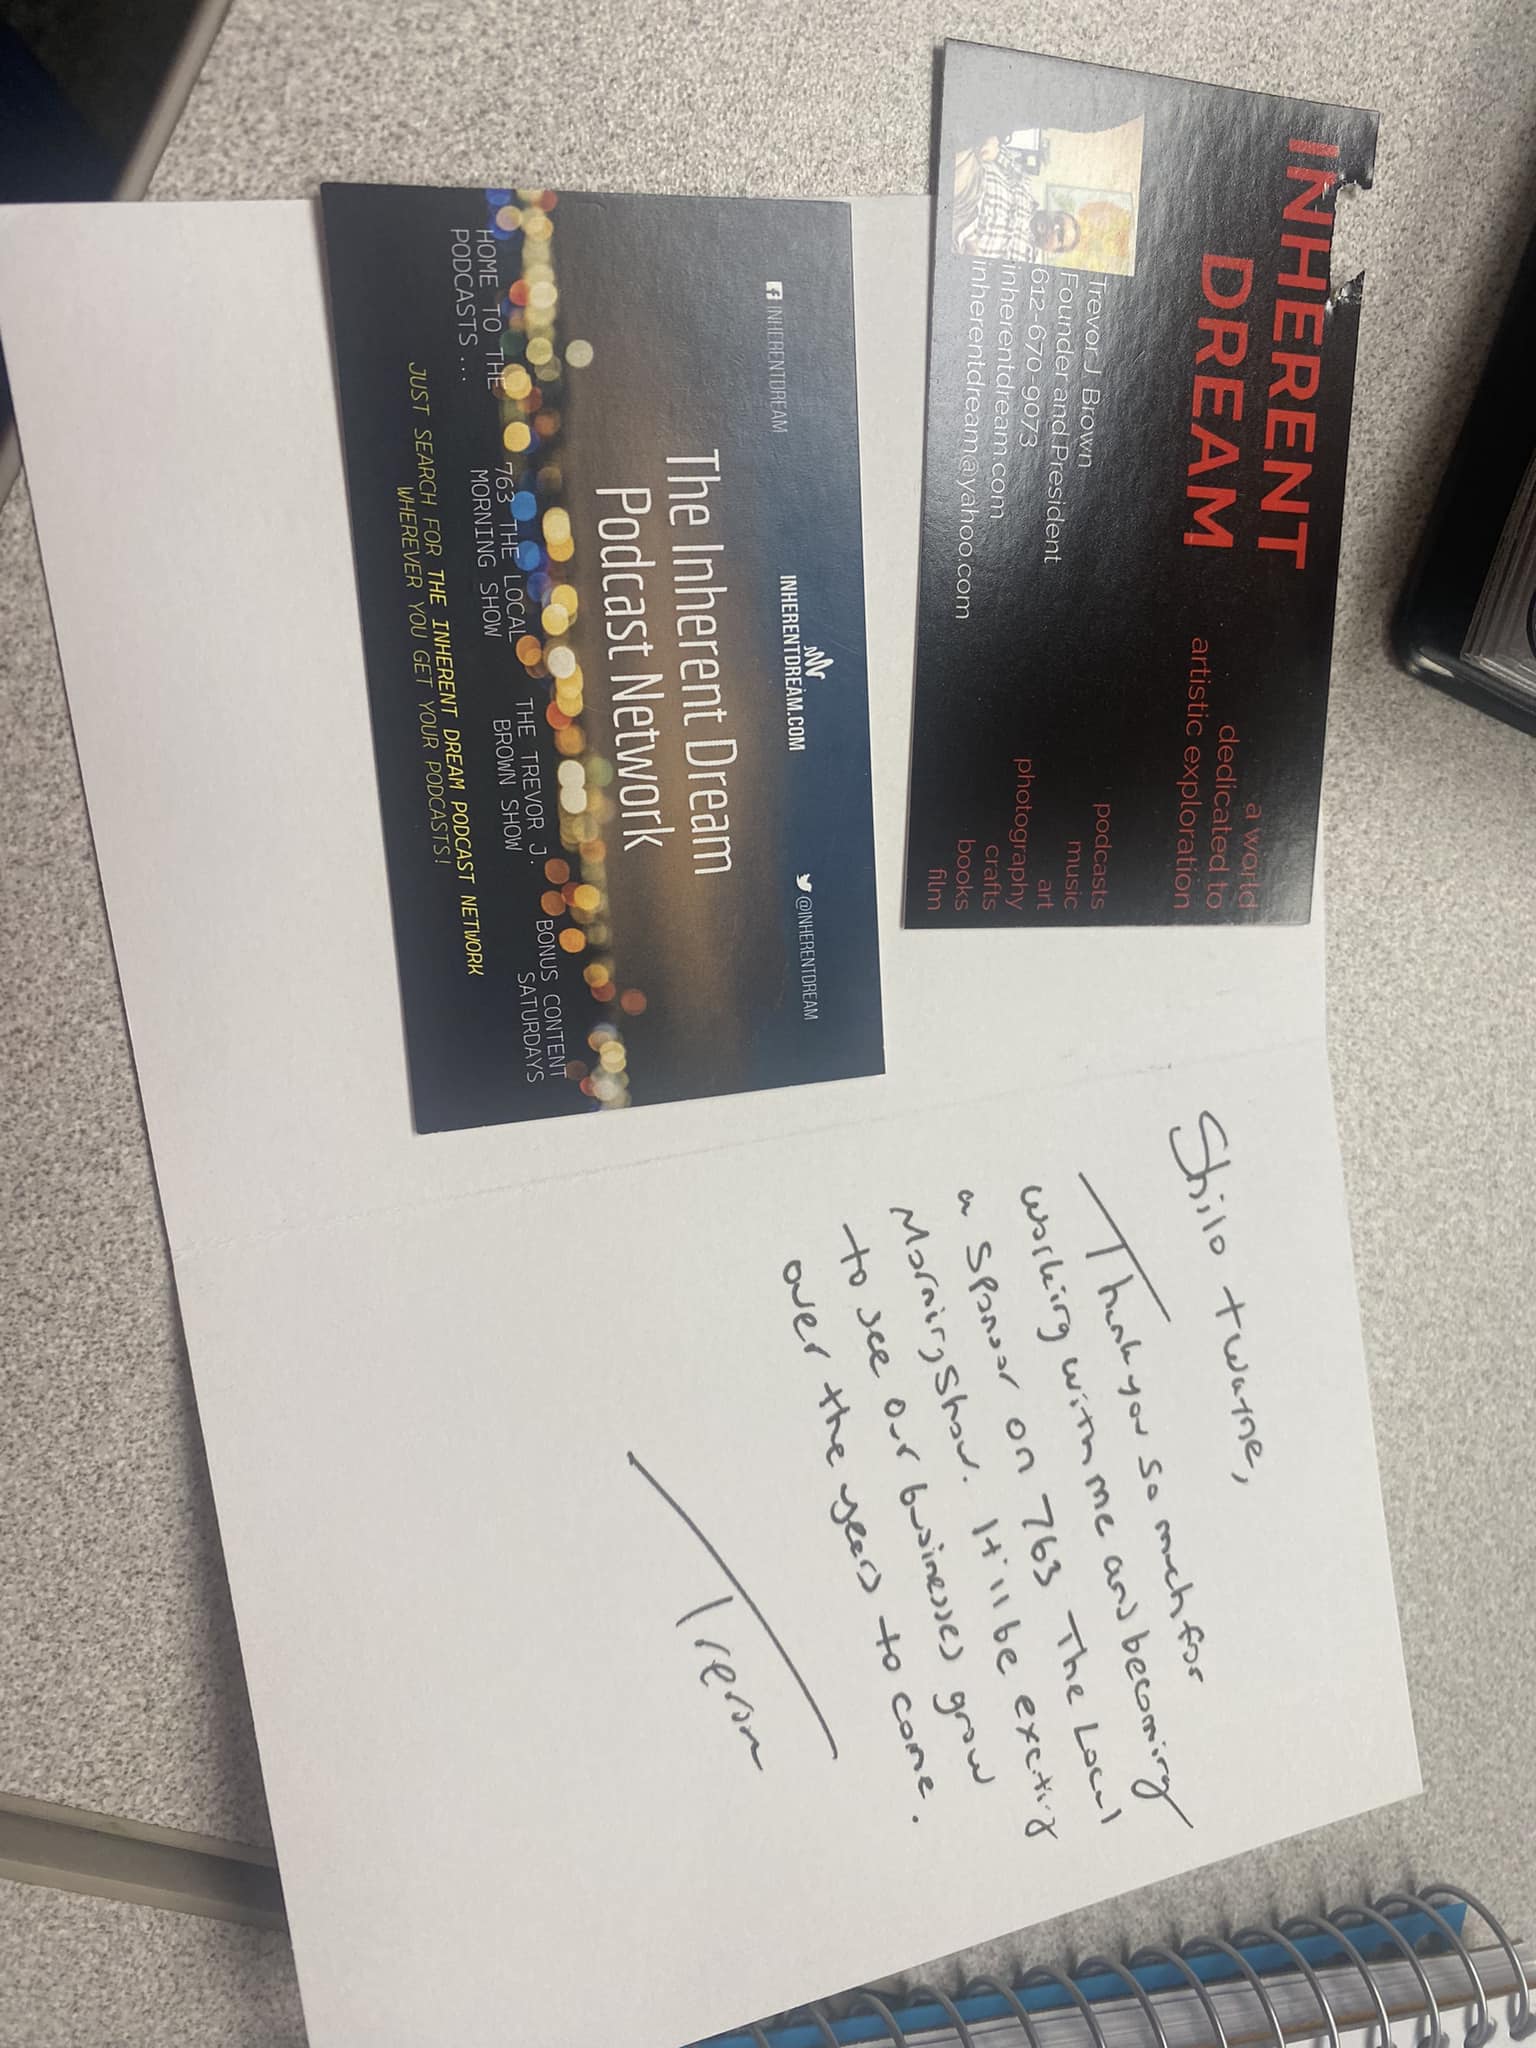 INHERENT
DREAM
a world
dedicated to
artistic exploration
Trevor J Brown
Founder and President
612-670-9073
inherentdream.com
inherentdream@yahoo.com
podcasts
music
art
photography
crafts
books
film
INHERENTDREAM
INHERENTDREAM.COM
@INHERENTDREAM
The Inherent Dream
Podcast Network
HOME TO THE
PODCASTS ...
763 THE LOCAL
MORNING SHOW
THE TREVOR J.
BROWN SHOW
BONUS CONTENT
SATURDAYS
JUST SEARCH FOR THE INHERENT DREAM PODCAST NETWORK
WHEREVER YOU GET YOUR PODCASTS!
Shilo + Wayne,
Thank you so much for
working with me and becoming
a sponsor on 763 The Local
Morning Show. It'll be exciting
to see our businesses grow
over the years to come.
Trevor